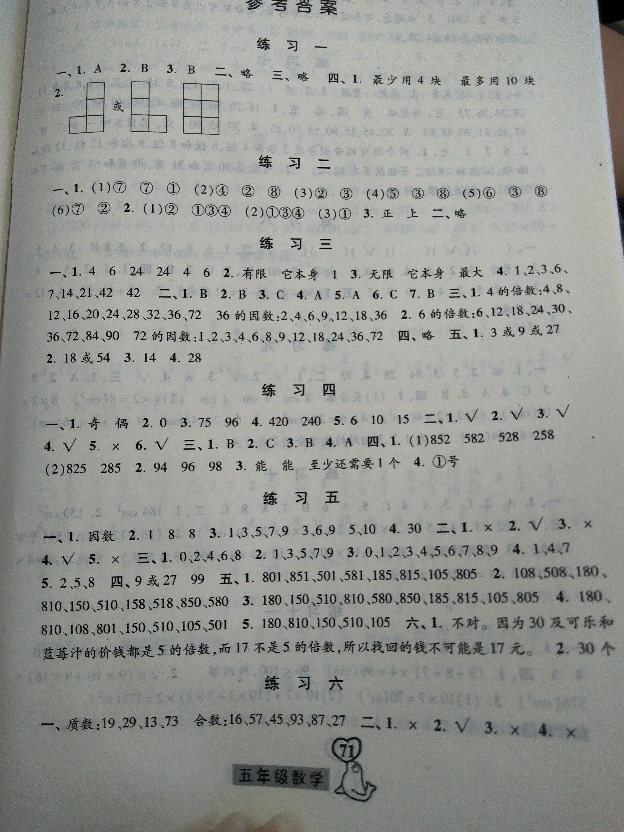 参考答案
练 习 一
一、1. A 2. B 3. B 二、略 三、略 四、1. 最少用4块 最多用10块
2. 或
练 习 二
一、1. (1)⑦ ⑦ ① (2)④ ② ⑧ (3)② ③ (4)⑤ ③ ⑧ (5)⑥ ③ ⑧
(6)⑦ ② 2. (1)② ①③④ (2)①③④ (3)① 3. 正 上 二、略
练 习 三
一、1. 4 6 24 24 4 6 2. 有限 它本身 1 3. 无限 它本身 最大 4. 1、2、3、6、
7、14、21、42 42 二、1. B 2. B 3. C 4. A 5. A 6. C 7. B 三、1. 4的倍数:4、8、
12、16、20、24、28、32、36、72 36的因数:2、4、6、9、12、18、36 2. 6的倍数:6、12、18、24、30、
36、72、84、90 72的因数:1、2、3、4、6、8、9、12、18、24、36、72 四、略 五、1. 3或9或27
2. 18或54 3. 14 4. 28
练 习 四
一、1. 奇 偶 2. 0 3. 75 96 4. 420 240 5. 6 10 15 二、1. √ 2. √ 3. √
4. √ 5. × 6. √ 三、1. B 2. C 3. B 4. A 四、1. (1)852 582 528 258
(2)825 285 2. 94 96 98 3. 能 能 至少还需要1个 4. ①号
练 习 五
一、1. 因数 2. 1 8 8 3. 1、3、5、7、9 3、6、9 5、10 4. 30 二、1. × 2. √ 3. ×
4. √ 5. × 三、1. 0、2、4、6、8 2. 1、3、5、7、9 3. 0、1、2、3、4、5、6、7、8、9 4. 1、4、7
5. 2、5、8 四、9或27 99 五、1. 801、851、501、581、185、815、105、805 2. 108、508、180、
810、150、510、158、518、850、580 3. 180、150、510、810、580、850、185、815、105、805 4. 180、
810、108、801、150、510、105、501 5. 180、810、150、510、105 六、1. 不对。因为30及可乐和
蓝莓汁的价钱都是5的倍数,而17不是5的倍数,所以找回的钱不可能是17元。 2. 30个
练 习 六
一、质数:19、29、13、73 合数:16、57、45、93、87、27 二、1. × 2. √ 3. × 4. ×
71
五年级数学